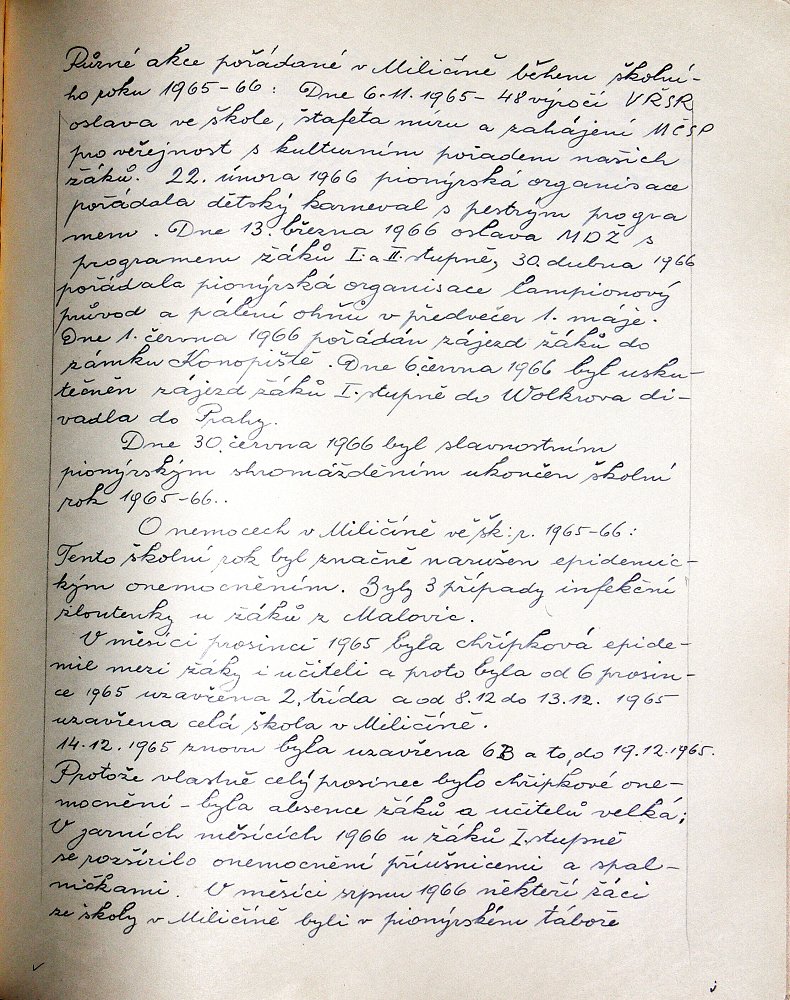 Různé akce pořádané v Miličíně během školní-
ho roku 1965-66: Dne 6.11.1965 - 48 výročí VŘSR
oslava ve škole, štafeta míru a zahájení MČSP
pro veřejnost s kulturním pořadem našich
žáků. 22. února 1966 pionýrská organisace
pořádala dětský karneval s pestrým progra
mem. Dne 13. března 1966 oslava MDŽ s
programem žáků I. a II. stupně, 30. dubna 1966
pořádala pionýrská organisace lampionový
průvod a pálení ohňů v předvečer 1. máje.
Dne 1. června 1966 pořádán zájezd žáků do
zámku Konopiště. Dne 6. června 1966 byl usku-
tečněn zájezd žáků I. stupně do Wolkrova di-
vadla do Prahy.
Dne 30. června 1966 byl slavnostním
pionýrským shromážděním ukončen školní
rok 1965-66..
O nemocech v Miličíně ve šk: r. 1965-66:
Tento školní rok byl značně narušen epidemic-
kým onemocněním. Byly 3 případy infekční
žloutenky u žáků z Malovic.
V měsíci prosinci 1965 byla chřipková epide-
mie mezi žáky i učiteli a proto byla od 6 prosin-
ce 1965 uzavřena 2. třída a od 8.12 do 13.12. 1965
uzavřena celá škola v Miličíně.
14.12.1965 znovu byla uzavřena 6B a to, do 19.12.1965.
Protože vlastně celý prosinec bylo chřipkové one-
mocnění - byla absence žáků a učitelů velká;
V jarních měsících 1966 u žáků I. stupně
se rozšířilo onemocnění příušnicemi a spal-
ničkami. V měsíci srpnu 1966 někteří žáci
ze školy v Miličíně byli v pionýrském táboře